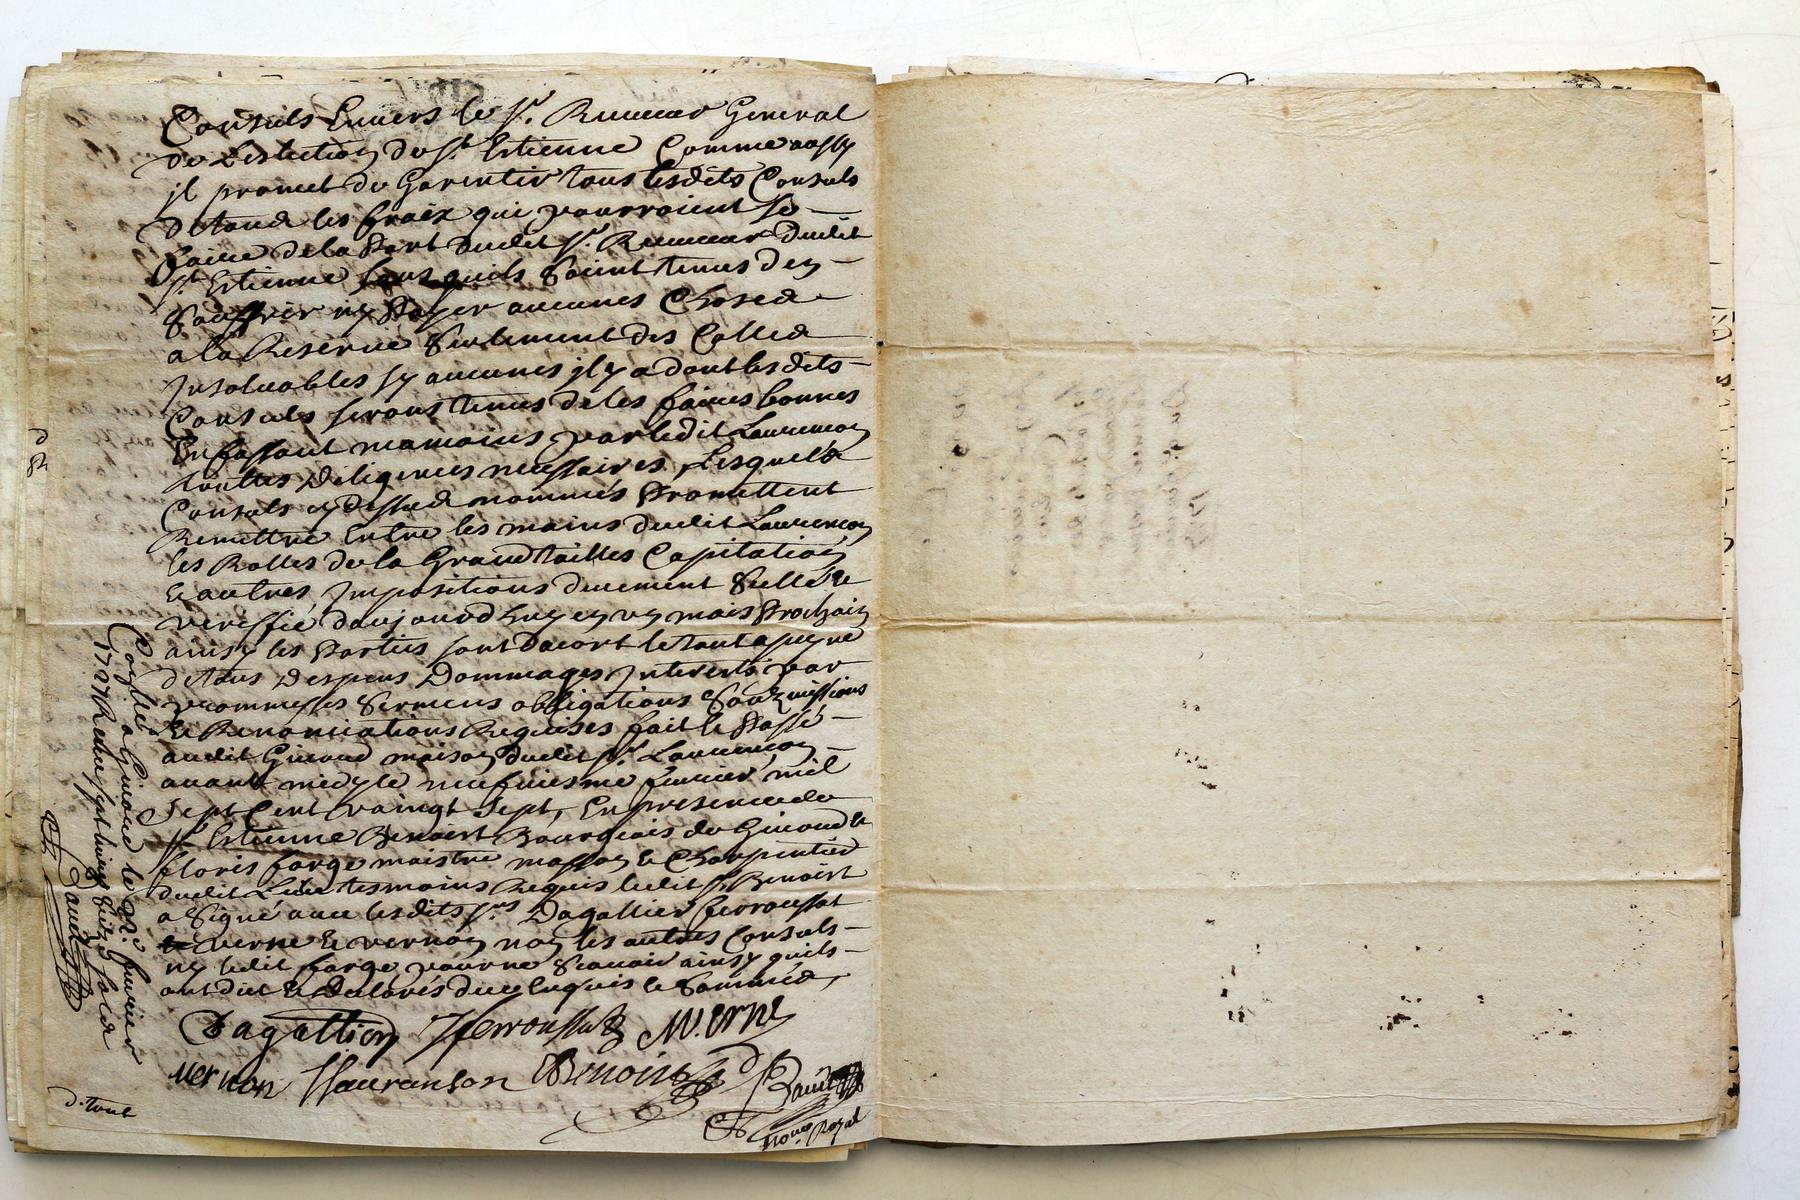 Consuls Envers le Sr. Receveur General
de Leslection de St. Estienne Comme aussy
jl promet de Garentir tous lesdits Consuls
de tous les fraix qui pourroient se
faire de la Part dudit Sr. Receveur dudit
St. Estienne sans quils soient tenus den
souffrir ny Payer aucunes Choses
a la Reserve seulement des Cottes
Insoluables sy aucunes jl y a dont lesdits
Consuls serons tenus de les faires bonnes
En faisant neamoins par ledit Laurenson
touttes diligences nessaires, Lesquels
Consuls cy dessus nommés Promettent
Remettre Entre les mains dudit Laurenson
les Rolles de la Grand tailles Capitation
Et autres Impositions duement sellé &
veriffié daujourdhuy en un mois Prochain
ainsy les Parties sont dacort le tout a peyne
de tous despens Dommages Interests par
promesses sermens obligations Soubmissions
Et Renonciations Requises fait & Passé
audit Giraud maison dudit Sr. Laurenson
avant midy le neufviesme fevrier mil
sept Cent vaingt sept, En presence de
Sr. Estienne Benoist Bourgeois de Giraud &
floris farge maistre masson & Charpentier
dudit Lieu tesmoins Requis ledit Sr. Benoist
a signé avec lesdits Srs. Dagallier ferroussat
verne & vernon non les autres Consuls
ny ledit farge pour ne scavoir ainsy quils
ont dict & declarés de ce Enquis & Sommés,
Dagallier ferroussat M. verne
vernon Hauranson Benoist
Noue. Royal
Conlleé a Giraud le 22e. fevrier
1727 Receu sept livres
d. tout